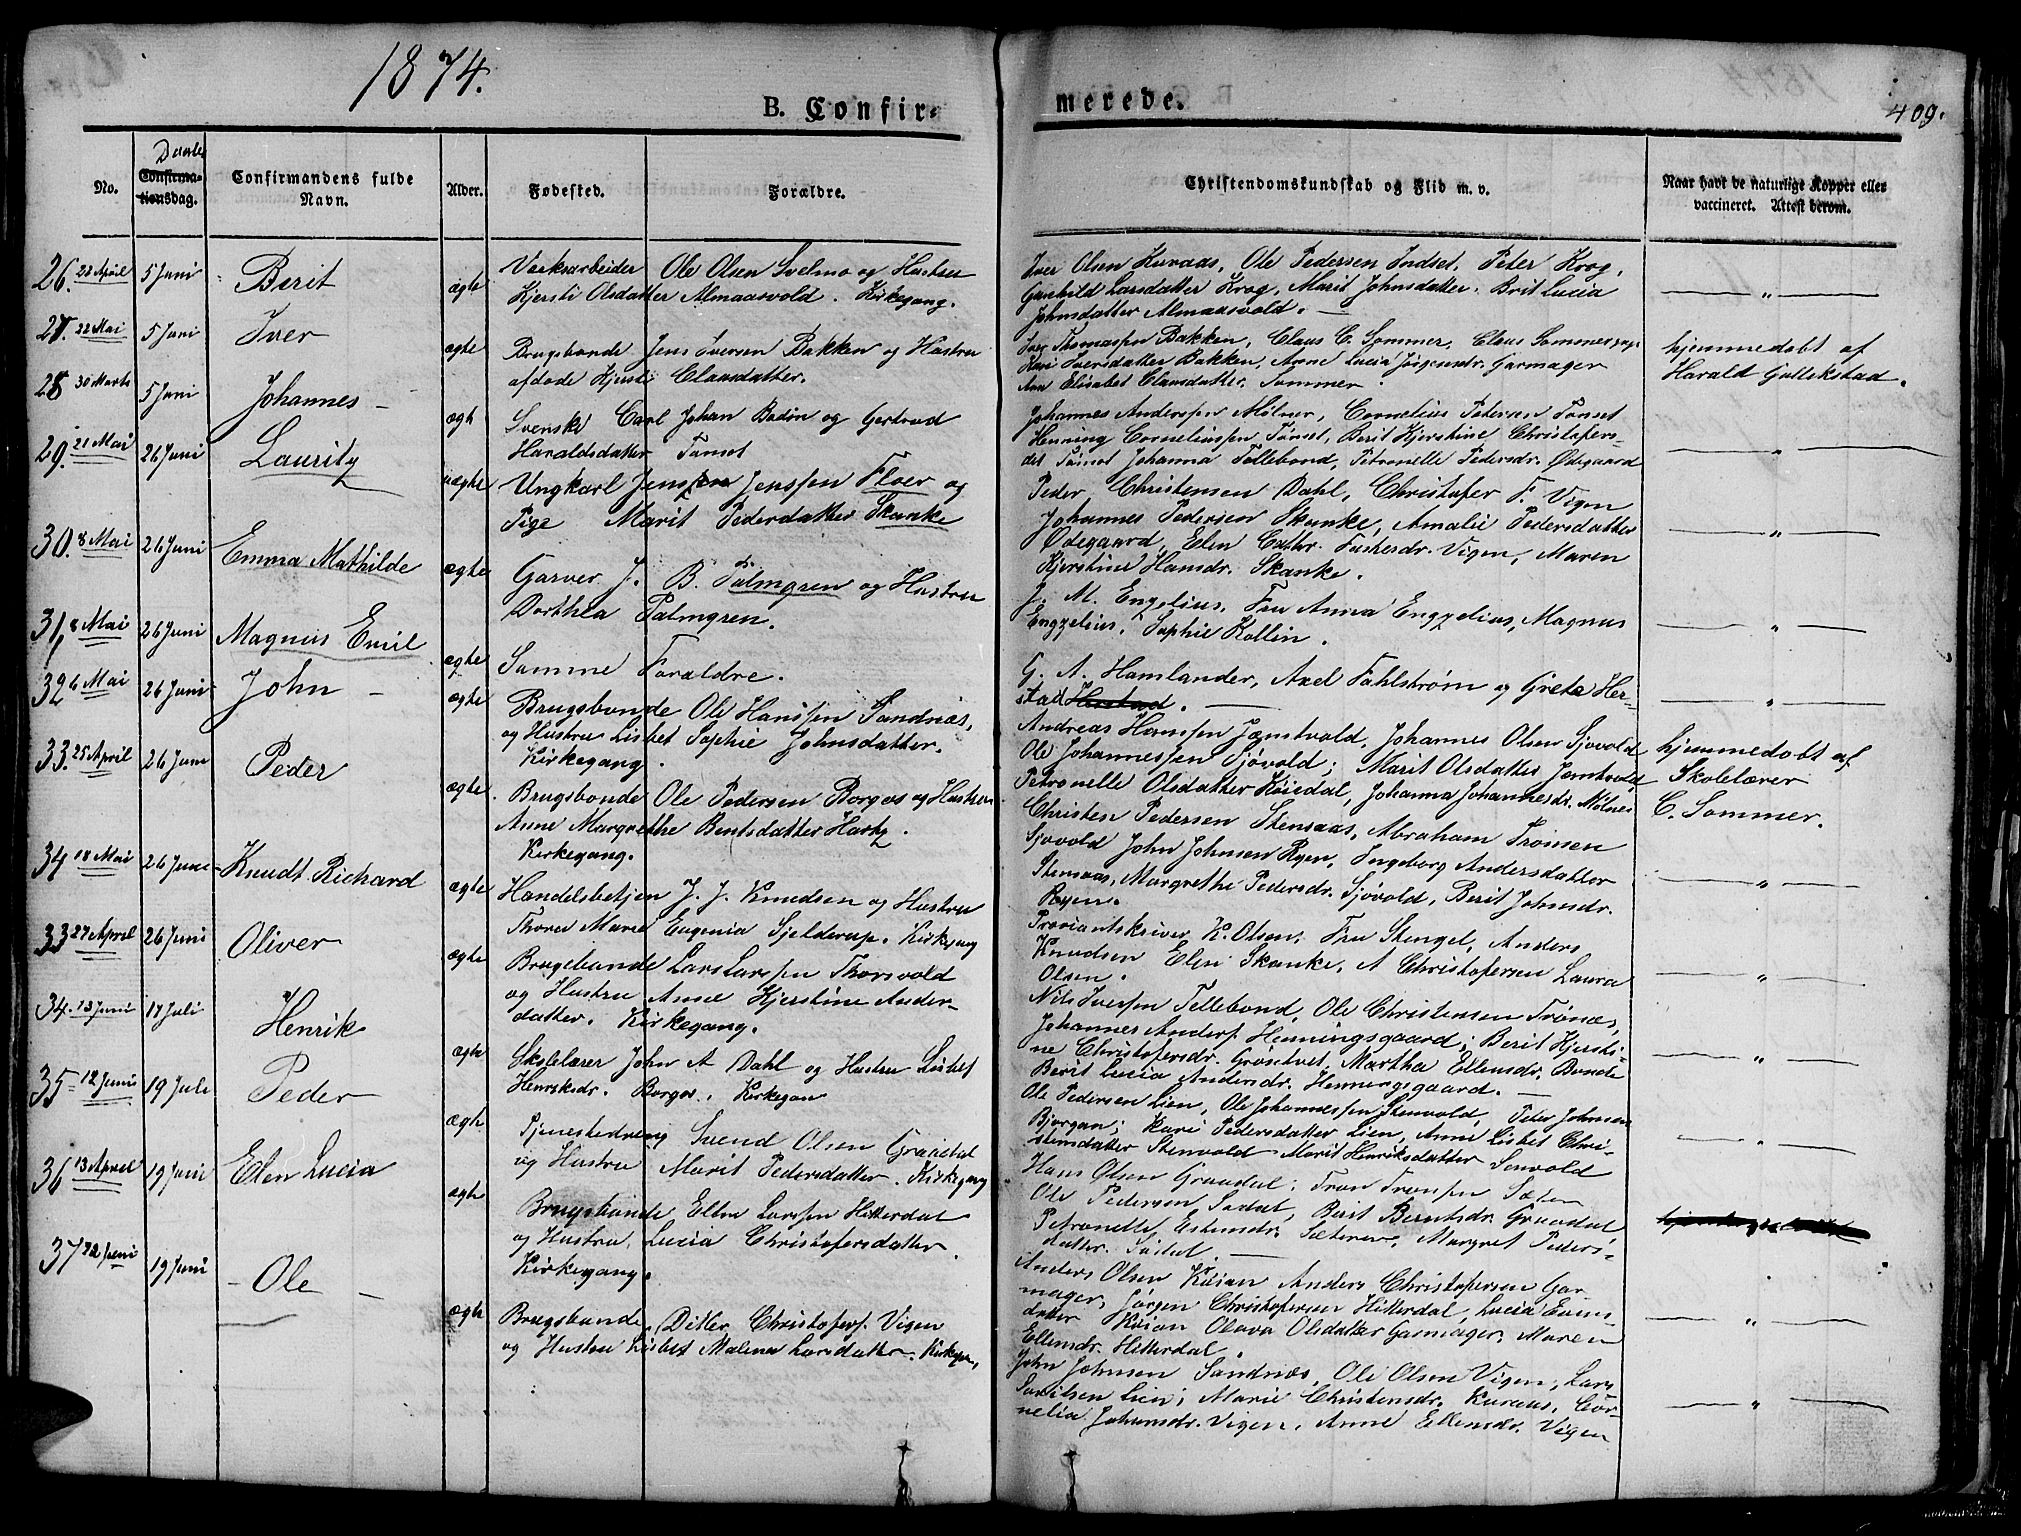 1874.
B. Confir-
merede.
409.
No.
Confirma-
tionsdag.
Confirmandens fulde
Navn.
Alder.
Fødested.
Forældre.
Christendomskundskab og Flid m. v.
Naar havt de naturlige Kopper eller
vaccineret. Attest derom.
26. 5 Juni Berit ægte Værksarbeider Ole Olsen Svelmo og Hustru
Kjersti Olsdatter Almaasvold. Kirkegang.
Iver Olsen Kuraas, Ole Pedersen Indset, Peter Krog,
Gunhild Larsdatter Krog, Marit Johnsdatter, Brit Lucia
Johnsdatter Almaasvold. —
— „ —
27. 22 Mai 5 Juni Iver ægte Brugsbonde Jens Iversen Bakken og Hustru
afdøde Kjersti Clausdatter.
Iver Thomassen Bakken, Claus C. Sommer, Claus Sommer
Kari Iversdatter Bakken, Anne Lucia Jørgensdr. Garmager
Ane Elisabet Clausdatter Sommer.
hjemmedøbt af
Harald
28 30 Marts 5 Juni Johannes — ægte Svenske Carl Johan Bodin og Gertrud
Haraldsdatter Tamset
Johannes Andersen Mølner, Cornelius Petersen Tønset
Henning Corneliussen Tønset, Berit Kjerstine Christofers-
dat Tønset Johanna Tollebond, Petronelle Pedersdr. Ødegaard
— „ —
29. 21 Mai 26 Juni Lauritz uægte Ungkarl Jens Jenssen Floer og
Pige Marit Pedersdatter Skanke
Peder Christensen Dahl, Christofer F. Vigen
Johannes Pedersen Skanke, Amalie Pedersdatter
Ødegaard, Elen Cathr. Vigen, Maren
Kjerstine Hansdr. Skanke.
— „ —
30. 8 Mai 26 Juni Emma Mathilde ægte Garver J. B. Palmgren og Hustru
Dorthea Palmgren.
J. M. Engelius, Fru Anna Engzelius, Magnus
Engzelius, Sophie Kollin.
— „ —
31. 8 Mai 26 Juni Magnus Emil ægte Samme Forældre.
G. A. Hamlander, Axel Fahlstrøm og Grete Her-
stad.
— „ —
32 6 Mai 26 Juni John — ægte Brugsbonde Ole Hanssen Sandnæs,
og Hustru Lisbet Sophie Johnsdatter.
Kirkegang.
Andreas Hanssen Jæmtvold, Johannes Olsen Sjovold
Ole Johannessen Sjøvold; Marit Olsdatter Jæmtvold
Petronelle Olsdatter Kojedal, Johanna Johannesdr. Mølner
hjemmedøbt af
Skolelærer
C. Sommer.
33. 25 April 26 Juni Peder ægte. Brugsbonde Ole Pedersen Borgos og Hustru
Anne Margrethe Bentsdatter Hartz.
Kirkegang.
Christen Pedersen Stensaas, Abraham Trønsen
Sjovold John Johnsen Ryen, Ingeborg Andersdatter
Stensaas, Margrethe Pedersdr. Sjøvold, Berit Johnsdr.
Ryen.
— „ —
34 18 Mai 26 Juni Knudt Richard ægte Handelsbetjen J. J. Knudsen og Hustru
Thora Marie Eugenia Sjelderup. Kirkegang
Proviantskriver K. Olsen, Fru Stengel, Anders
Knudsen Elen Skanke, A Christofersen Laura
Olsen.
— „ —
33 27 April 26 Juni Oliver ægte Brugsbonde Lars Larssen Thorsvold
og Hustru Anne Kjerstine Ander-
datter. Kirkegang.
Nils Iverssen Tellebond, Ole Christensen Trønæs,
Johannes Anders. Henningsgaard; Berit Kjersti-
ne Christofersdr. Grøntvet, Martha Ellensdr. Bonde
Berit Lucia Andersdr. Henningsgaard. —
— „ —
34. 13 Juni 17 Juli Henrik ægte Skolelærer John A Dahl og Hustru Lisbet
Henriksdr. Borgos. Kirkegan
Ole Pedersen Lien, Ole Johannessen Stenvold, Peter Johnsen
Bjorgan; Kari Pedersdatter Lien, Anne Lisbet Chri-
stensdatter Stenvold Marit Henriksdatter
— „ —
35 12 Juni 19 Juli Peder ægte. Tjenestedreng Svend Olsen Graadal
og Hustru Marit Pedersdatter. Kirkegang
Hans Olsen Graadal; Tron Tronsen Sæter
Ole Pedersen Sadal, Berit Berntsdr. Graadal
Petronelle Estensdr. Sæteren, Margret Peders-
datter Sadal. —
36 13 April 19 Juni Elen Lucia ægte Brugsbonde Ellen Larssen Hitterdal
og Hustru, Lucia Christofersdatter.
Kirkegang.
Anders Olsen Kojan Anders Christofersen Gar-
mager, Jørgen Christofersen Hitterdal, Lucia
datter Kojan Olava Olsdatter Garmager, Maren
Ellensdr. Hitterdal.
— „ —
37 22 Juni 19 Juni — Ole — ægte Brugsbonde Ditlev Christofers. Vigen
og Hustru Lisbet Malena Larsdatter.
John Johnsen Sandnæs, Ole Olsen Vigen, Lars
Lien; Marie Christensdr. Kuraas, Cor-
nelia Johansdr. Vigen, Anne Ellensdr. Vigen
— „ —